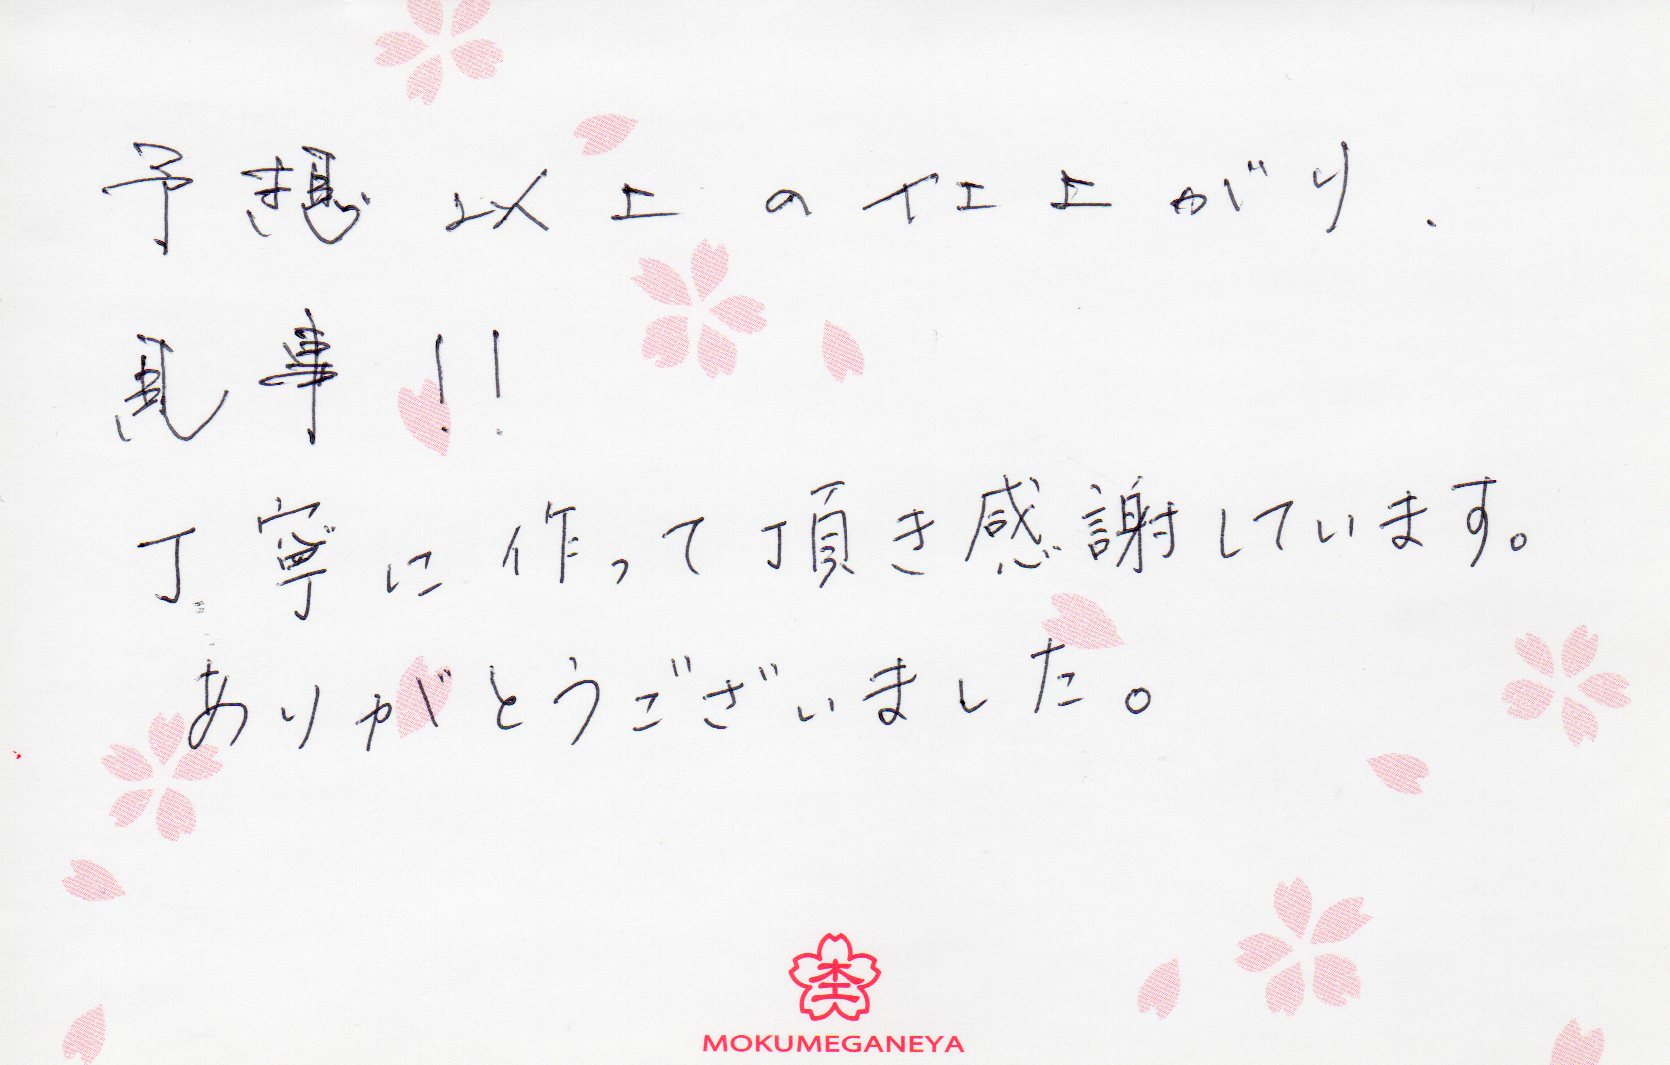 予想以上の仕上がり、
見事!!
丁寧に作って頂き感謝しています。
ありがとうございました。
MOKUMEGANEYA